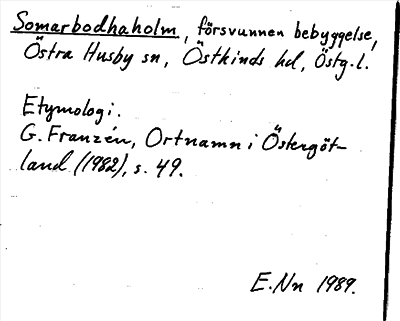 Somarbodhaholm, försvunnen bebyggelse,
Östra Husby sn, Östkinds hd, Östg.l.
Etymologi.
G. Franzén, Ortnamn i Östergöt-
land (1982), s. 49.
E. Nn 1989.